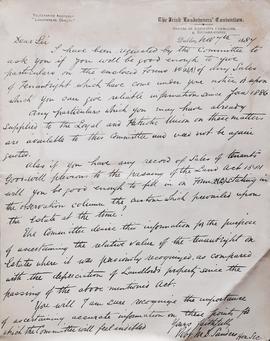 Telegraphic Address:
The Irish Landowners' Convention.
Dublin, 1887
Dear Sir
I have been requested by the Committee to
ask you if you will be good enough to give
particulars on the enclosed forms of any Sales
of Tenantright which have come under your notice & upon
which you can give reliable information since Jany 1886
Any particulars which you may have already
supplied to the Loyal and Patriotic Union on these matters
are available to this Committee and will not be again
Also if you have any record of Sales of tenants
Goodwill previous to the passing of the Land Act 1881
will you be good enough to fill in on Form stating in
the observation column the custom which prevailed upon
the Estate at the time.
The Committee desire this information for the purpose
of ascertaining the relative value of the tenantright on
Estates where it was previously recognised, as compared
with the depreciation of Landlords property since the
passing of the above mentioned Act.
You will I am sure recognise the importance
of ascertaining accurate information on these points for
which the Committee will feel indebted
Yours faithfully
Hon Sec